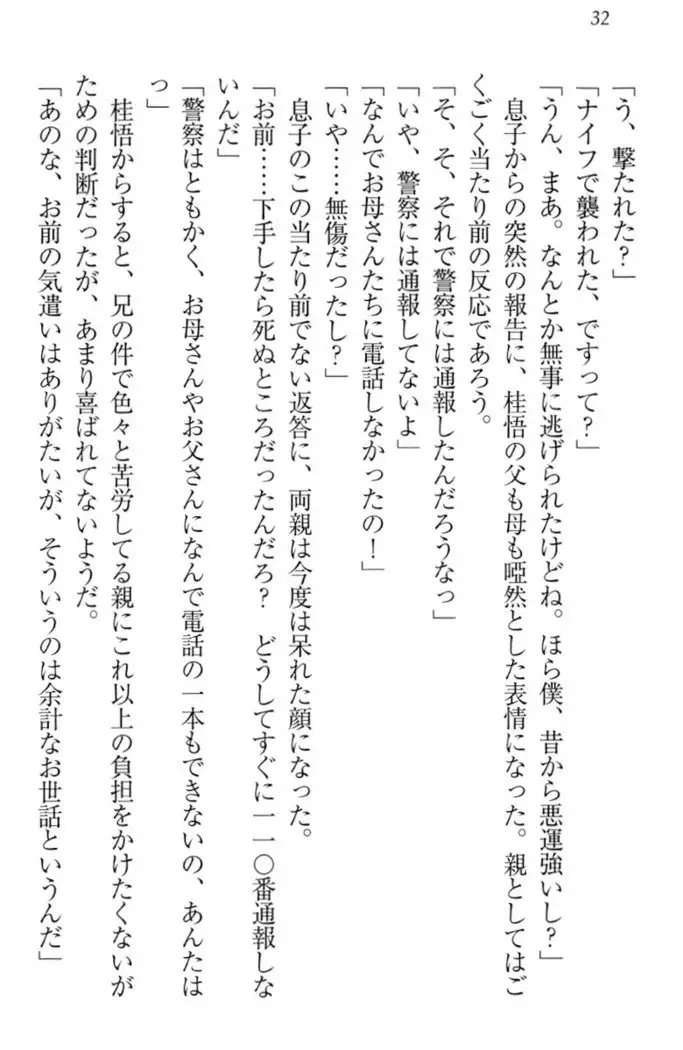 32
「う、撃たれた？」
「ナイフで襲われた、ですって？」
「うん、まあ。なんとか無事に逃げられたけどね。ほら僕、昔から悪運強いし？」
息子からの突然の報告に、桂悟の父も母も啞然とした表情になった。親としてはご
くごく当たり前の反応であろう。
「そ、そ、それで警察には通報したんだろうなっ」
「いや、警察には通報してないよ」
「なんでお母さんたちに電話しなかったの！」
「いや……無傷だったし？」
息子のこの当たり前でない返答に、両親は今度は呆れた顔になった。
「お前……下手したら死ぬところだったんだろ？　どうしてすぐに一一〇番通報しな
いんだ」
「警察はともかく、お母さんやお父さんになんで電話の一本もできないの、あんたは
っ」
桂悟からすると、兄の件で色々と苦労してる親にこれ以上の負担をかけたくないが
ための判断だったが、あまり喜ばれてないようだ。
「あのな、お前の気遣いはありがたいが、そういうのは余計なお世話というんだ」